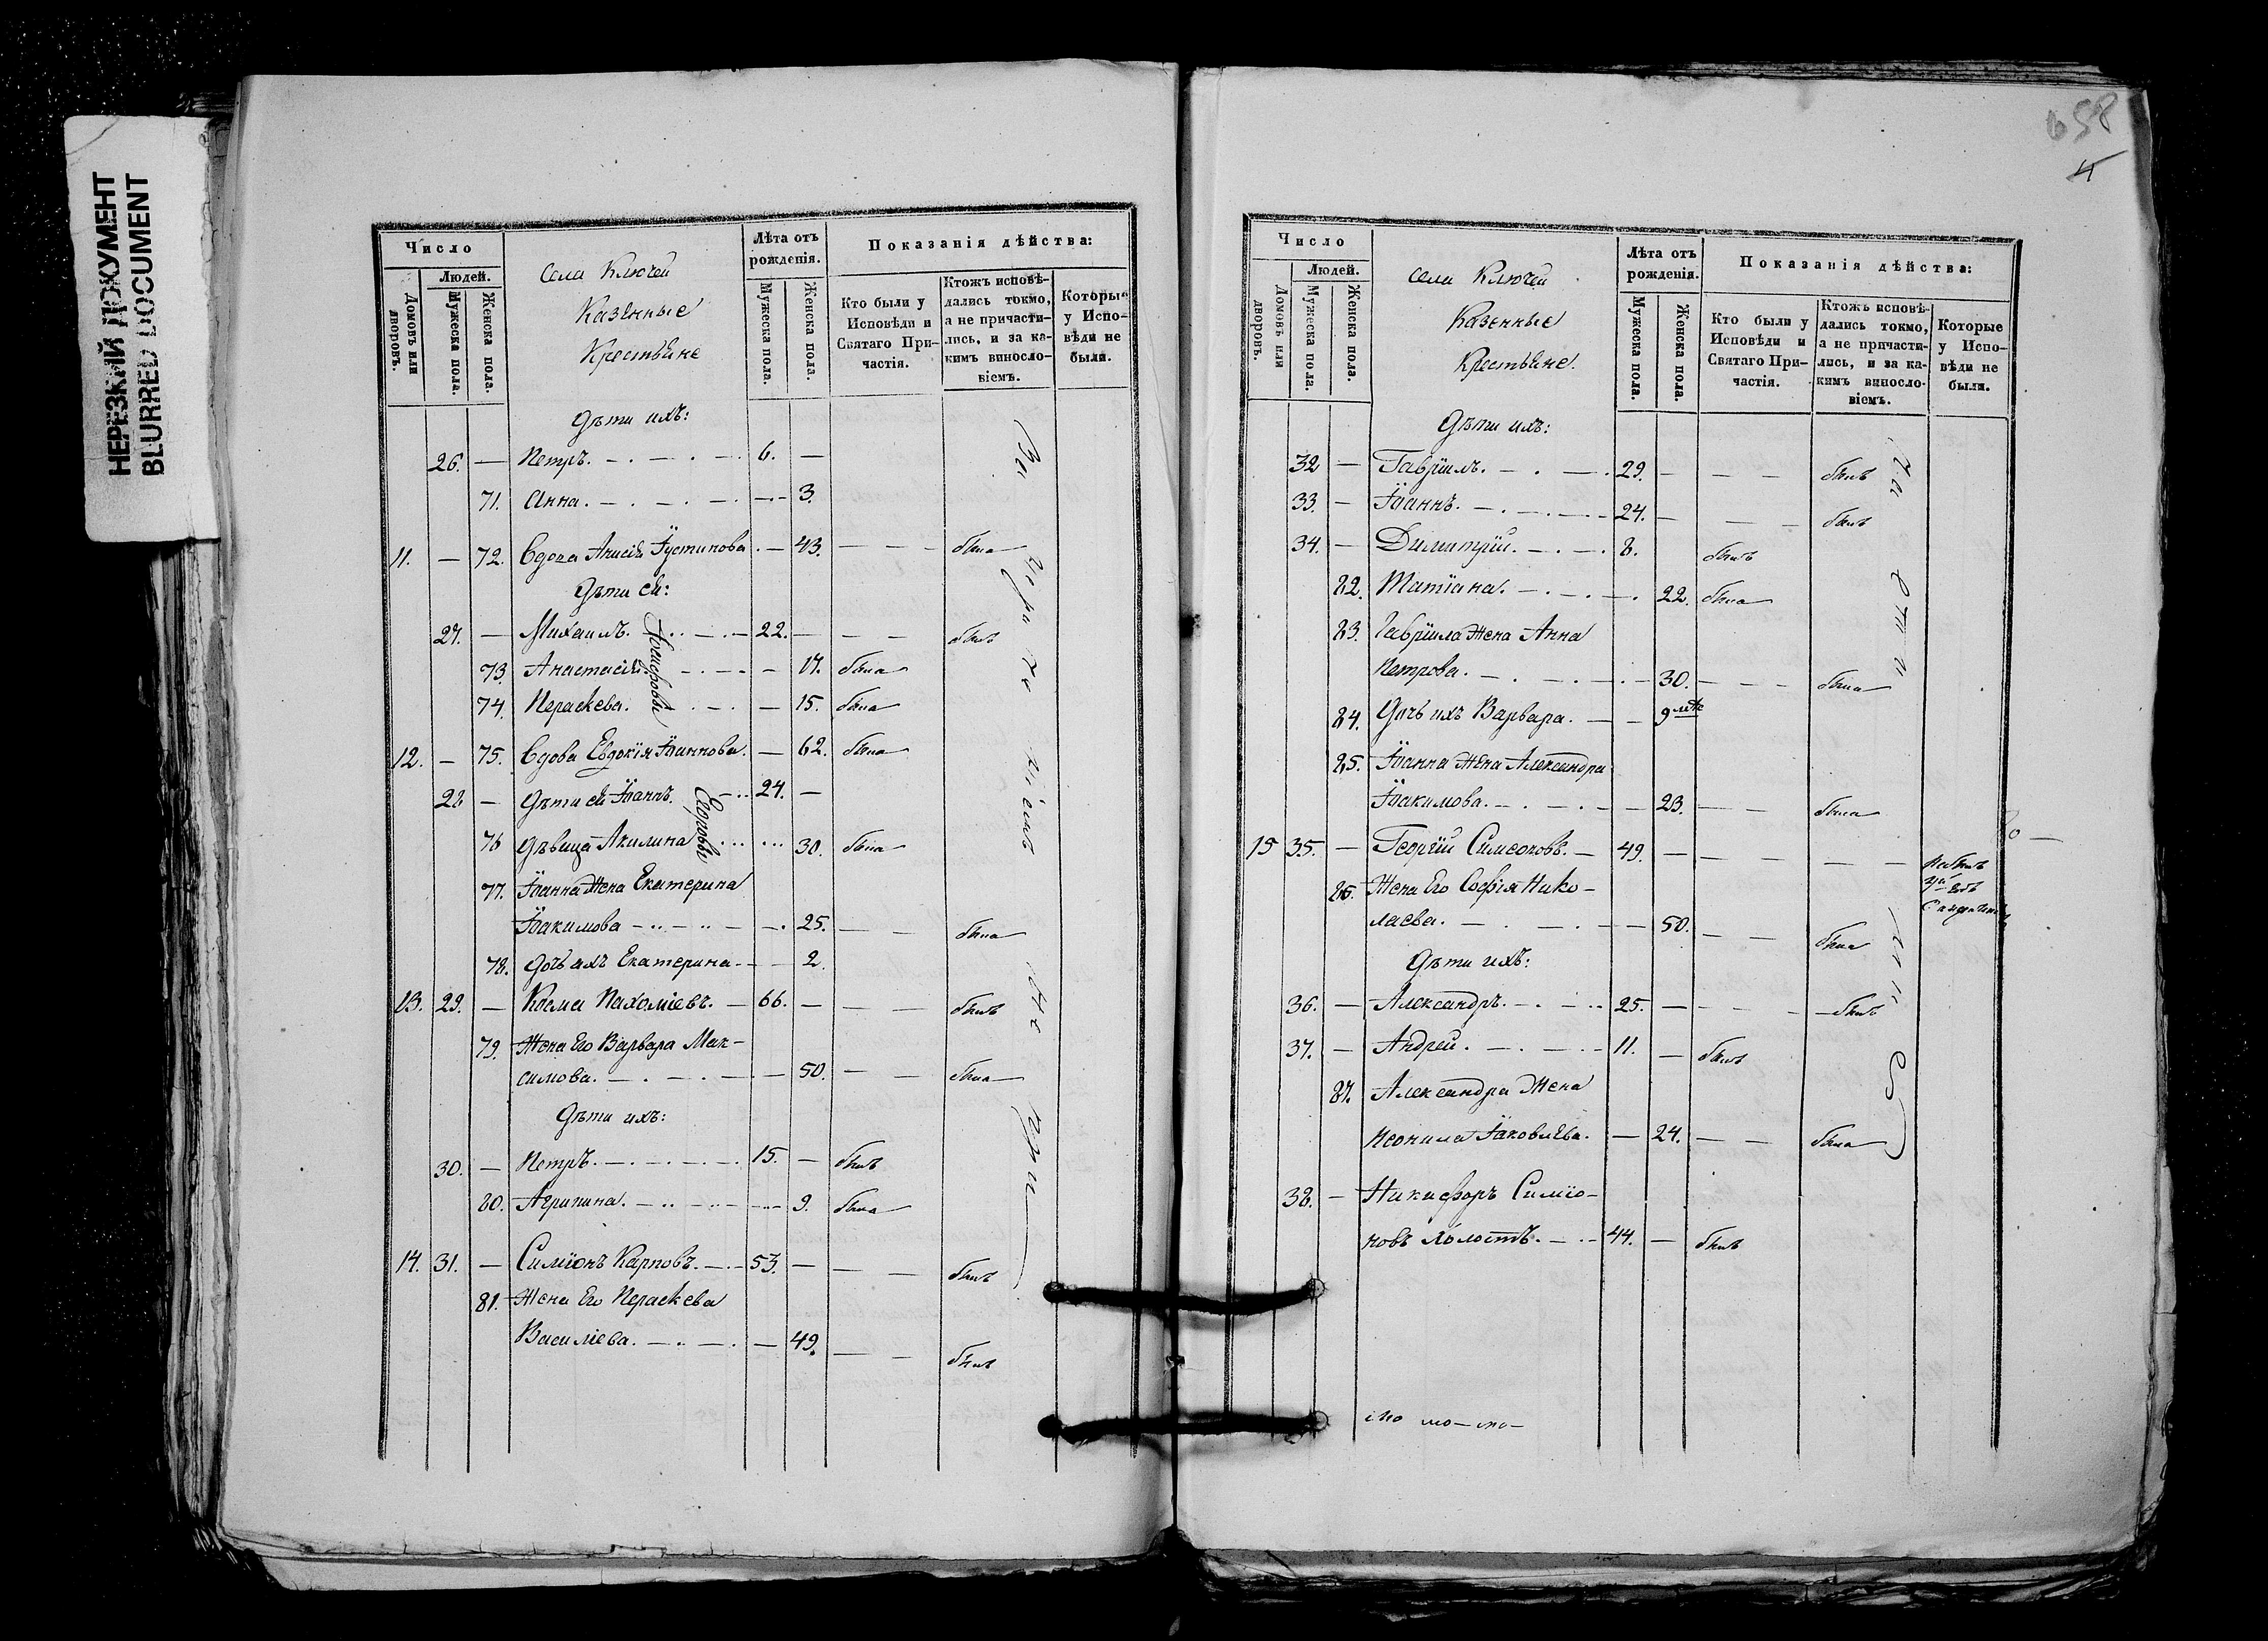 НЕРЕЗКИЙ ДОКУМЕНТ
BLURRED DOCUMENT
Число
Людей.
Домовъ или дворовъ.
Мужеска пола.
Женска пола.
Села Ключей
Казенные
Крестьяне
Лѣта отъ рожденія.
Мужеска пола.
Женска пола.
Показанія дѣйства:
Кто были у Исповѣди и Святаго При-частія.
Ктожъ исповѣ-дались токмо, а не причасти-лись, и за ка-кимъ виносло-віемъ.
Которые у Испо-вѣди не были.
Дѣти ихъ:
26. — Петръ. 6. —
71. Анна. 3.
11. — 72. Вдова Анисія Іустинова. — 43. — — была
Дѣти ея:
27. — Михаилъ. 22. — — — былъ
73. Анастасія. — 17. была
74. Параскева. — 15. была
12. — 75. Вдова Евдокія Іоаннова. — 62. была
28 — Дѣти ея Іоаннъ. 24. —
76 Дѣвица Акилина 30. была
77. Іоанна Жена Екатерина
Іоакимова 25. — — была
78. Дочь ихъ Екатерина 2.
13. 29. — Косма Пахоміевъ. — 66. — — — былъ
79. Жена Его Варвара Мак-
симова. — 50. — — была
Дѣти ихъ:
30. — Петръ. 15. — былъ
80. Агрипина. 9. была
14. 31. — Симіонъ Карповъ. — 53. — — — былъ
81. Жена Его Параскева
Василіева. — 49. — — былъ
658
4
Число
Людей.
Домовъ или дворовъ.
Мужеска пола.
Женска пола.
Села Ключей
Казенные
Крестьяне.
Лѣта отъ рожденія.
Мужеска пола.
Женска пола.
Показанія дѣйства:
Кто были у Исповѣди и Святаго При-частія.
Ктожъ исповѣ-дались токмо, а не причасти-лись, и за ка-кимъ виносло-віемъ.
Которые у Испо-вѣди не были.
Дѣти ихъ:
32 — Гавріилъ. 29. — — — былъ
33. — Іоаннъ. 24. — — — былъ
34. — Димитрій. 8. былъ
82. Татіана. 22. была
83. Гавріила Жена Анна
Петрова. — 30. — — — была
84. Дочь ихъ Варвара. — 9
85. Іоанна Жена Александра
Іоакимова. — 23. — — была
15 35. — Георгій Симеоновъ. — 49. — — — — — не былъ
86. Жена Его Софія Нико-
лаева. — 50. — — была
Дѣти ихъ:
36. — Александръ. 25. — — — былъ
37. — Андрей. 11. — былъ
87. Александра Жена
Неонила Іаковлева. — 24. — — была
38. — Никифоръ Симіо-
новъ Холостъ. 44. — былъ